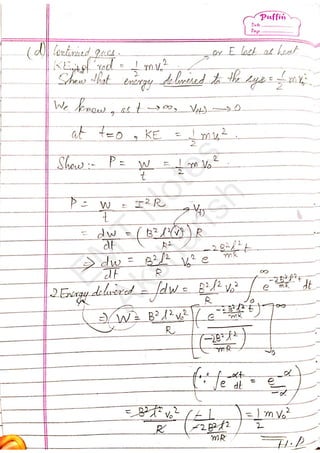 Puffin
Date
Page
(d) Continued gues. or E lost as heat
KE of rod = 1/2 mv₀²
Show that energy delivered to the sys = 1/2 mv₀²
We know, as t → ∞, V(t) → 0
at t=0, KE = 1/2 mv₀²
Show:- P = W/t = 1/2 m V₀²
P = W/t = I²R
V(t)
= dw/dt = (B²l²(v²)/R²) R
⇒ dw/dt = B²l²/R V₀² e^(-2B²l²/mR t)
2. Energy delivered = ∫dw = B²l²V₀²/R ∫₀^∞ e^(-2B²l²t/mR) dt
⇒ W = B²l²v₀²/R [e^(-2B²l²/mR t)/(-2B²l²/mR)]₀^∞
(∵ ∫e^(-αt) dt = e^(-α)/-α)
= B²l²V₀²/R (-1/(-2B²l²/mR)) = 1/2 mv₀²
H.P